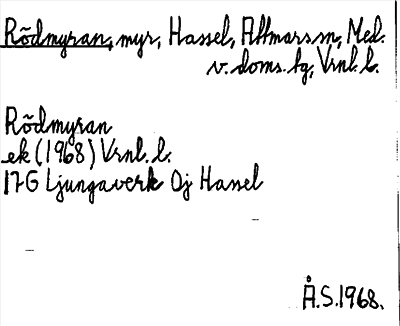 Rödmyran, myr, Hassel, Attmars sn, Med.
v. doms. tg, Vrnl. l.
Rödmyran
ek (1968) Vrnl. l.
17G Ljungaverk Öj Hassel
Å.S. 1968.